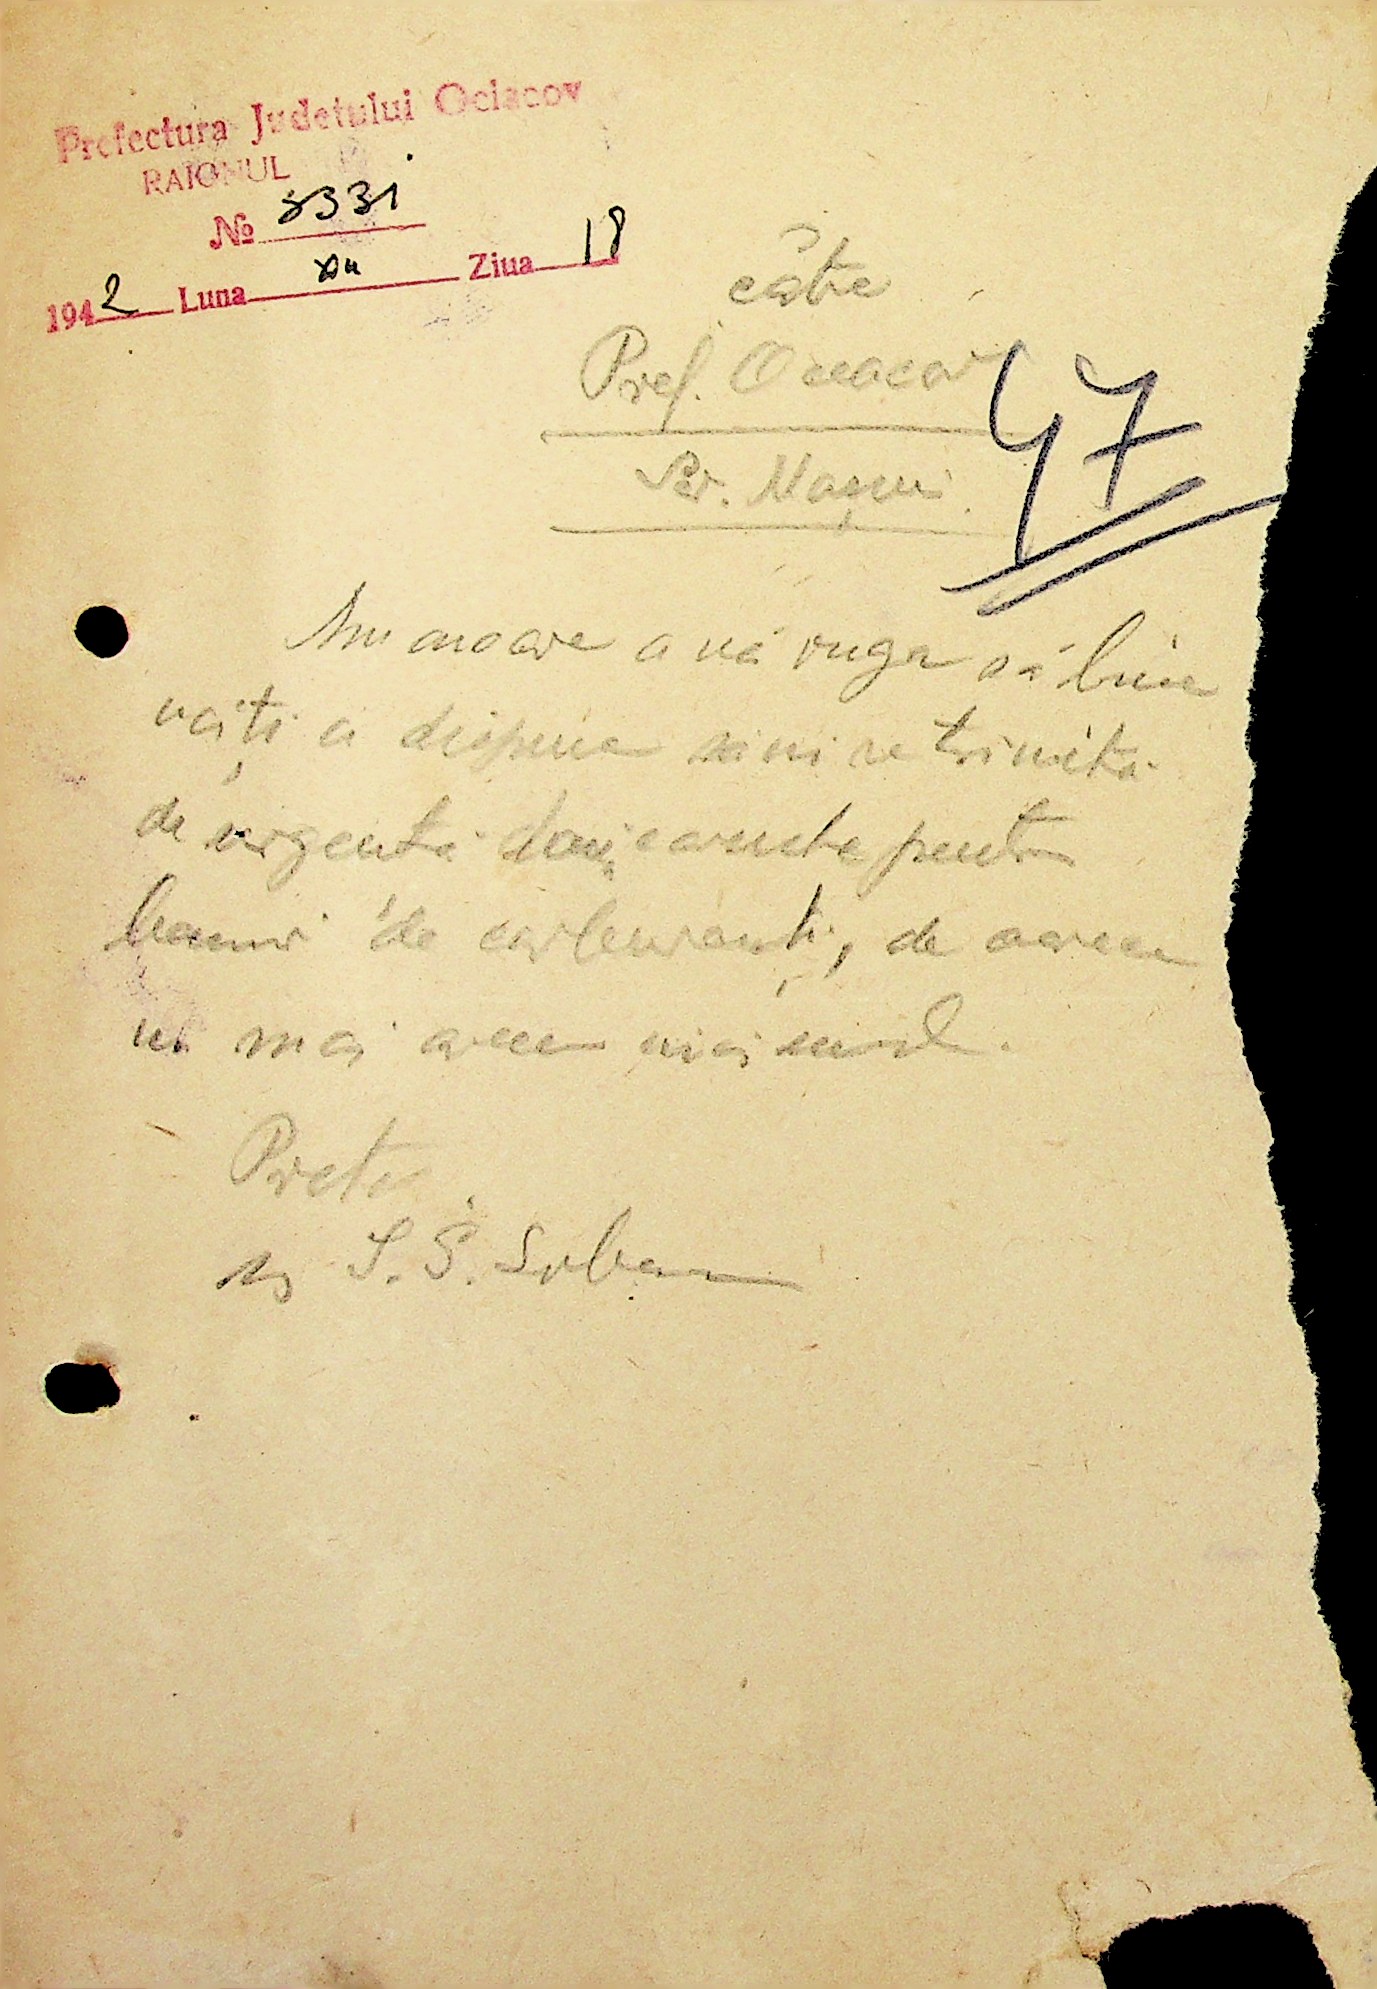 Prefectura Județului Ociacov
RAIONUL
№ 3331
1942 Luna XII Ziua 18
către
Pref. Oceacov
47
Ser. Mașini
Am onoare a vă ruga să bine
voiți a dispune să ni se trimită
de urgență două carnete pentru
bonuri de carburanți, de oarece
nu mai avem nici unul.
Pretor
ss S. S. Serban